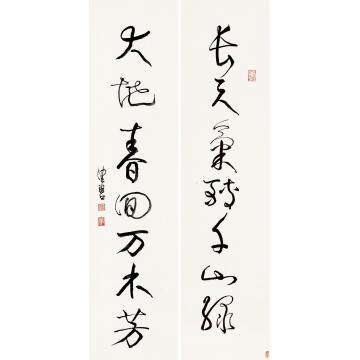 长天气转千山绿
大地春回万木芳